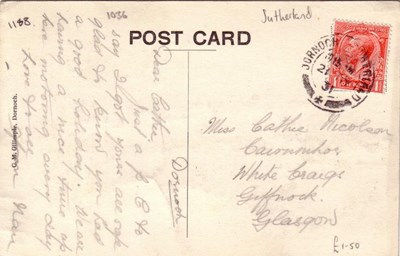 1188
1036
Sutherland.
POST CARD
DORNOCH
31
Dornoch
Dear Cathie,
Just a p.c. to
say I got yours and
glad to know you had
a good holiday. We are
having a nice time up
here motoring every day
love to all
from Nan
Miss Cathie Nicolson
White Craigs
Giffnock
Glasgow
G. M. Gillespie, Dornoch.
£1-50